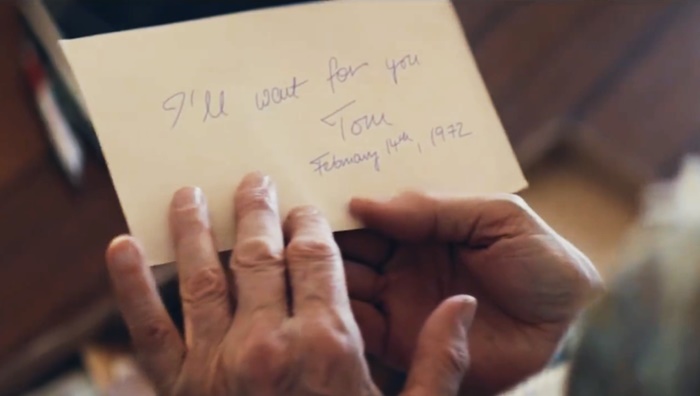 I'll wait for you
Tom
February 14th, 1972